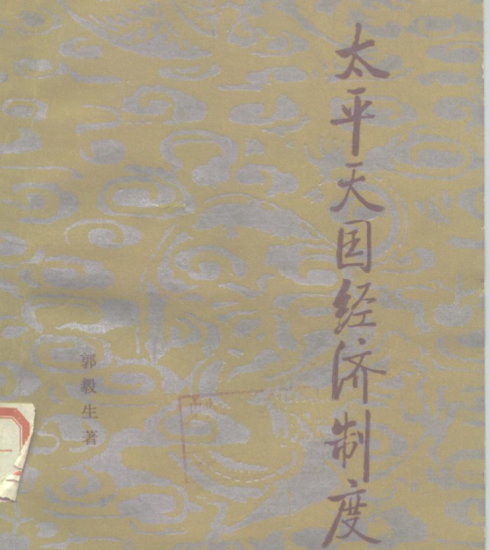 太平天国经济制度
郭毅生著